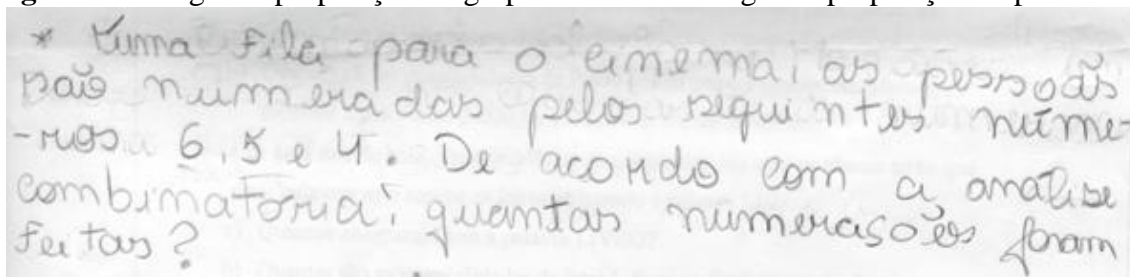 * Numa fila para o cinema, as pessoas
são numeradas pelos seguintes núme-
-ros 6, 5 e 4. De acordo com a analise
combinatória, quantas numerasões foram
feitas?